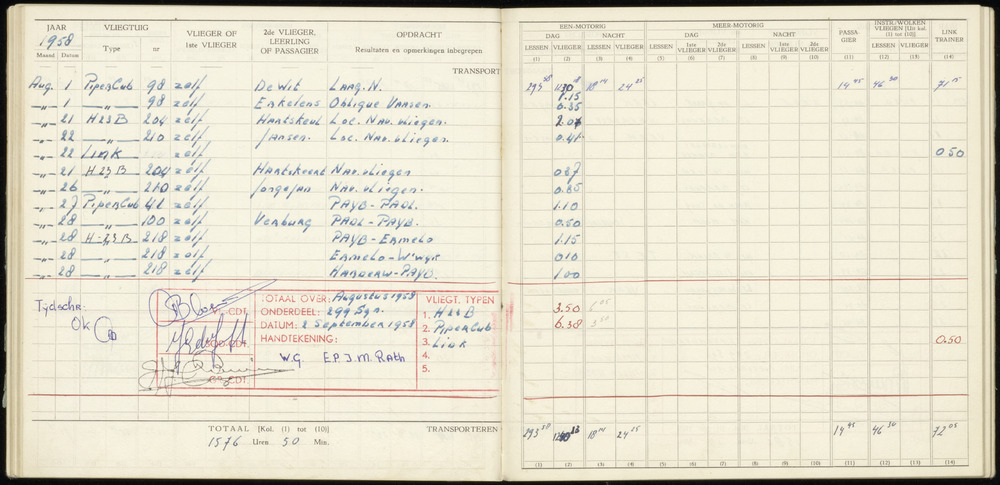 JAAR
1958
Maand Datum
VLIEGTUIG
Type nr
VLIEGER OF
1ste VLIEGER
2de VLIEGER,
LEERLING
OF PASSAGIER
OPDRACHT
Resultaten en opmerkingen inbegrepen
TRANSPORT
Aug. 1 PiperCub 98 zelf De Wit Lang. N.
-„- 1 -„- 98 zelf Enkelens Oblique
-„- 21 H23B 204 zelf Loc. Nav. vliegen.
-„- 22 -„- 210 zelf Jansen. Loc. Nav. vliegen.
-„- 22 Link zelf
-„- 21 H23B 204 zelf Nav. vliegen
-„- 26 -„- 210 zelf Jongejan Nav. vliegen.
-„- 27 PiperCub zelf PAYB-PADL.
-„- 28 -„- 100 zelf Verburg PADL-PAYB.
-„- 28 H-23B 218 zelf PAYB-Ermelo
-„- 28 -„- 218 zelf Ermelo-W'wyk
-„- 28 -„- 218 zelf Harderw-PAYB.
Tydschr.
OK
VL-CDT.
SQD-CDT.
GR-CDT.
TOTAAL OVER: Augustus 1958
ONDERDEEL: 299 Sqn.
DATUM: 2 September 1958
HANDTEKENING:
W.G. E.P.J.M. Rath
VLIEGT. TYPEN
1. H23B
2. PiperCub
3. Link
4.
5.
TOTAAL [Kol. (1) tot (10)]
1576 Uren 50 Min.
TRANSPORTEREN
EEN-MOTORIG
DAG NACHT
LESSEN VLIEGER LESSEN VLIEGER
(1) (2) (3) (4)
MEER-MOTORIG
DAG NACHT
LESSEN 1ste VLIEGER 2de VLIEGER LESSEN 1ste VLIEGER 2de VLIEGER
(5) (6) (7) (8) (9) (10)
PASSA-
GIER
(11)
INSTR./WOLKEN
VLIEGEN [Uit kol.
(1) tot (10)]
LESSEN VLIEGER
(12) (13)
LINK
TRAINER
(14)
293 58 18 14 24 25 14 45 46 30 71 15
1.15
0.35
2.07
0.41
0.50
0.35
1.10
0.50
1.15
0.10
1.00
3.50
6.38
0.50
293 58 18 14 24 25 14 45 46 30 72 05
(1) (2) (3) (4) (5) (6) (7) (8) (9) (10) (11) (12) (13) (14)